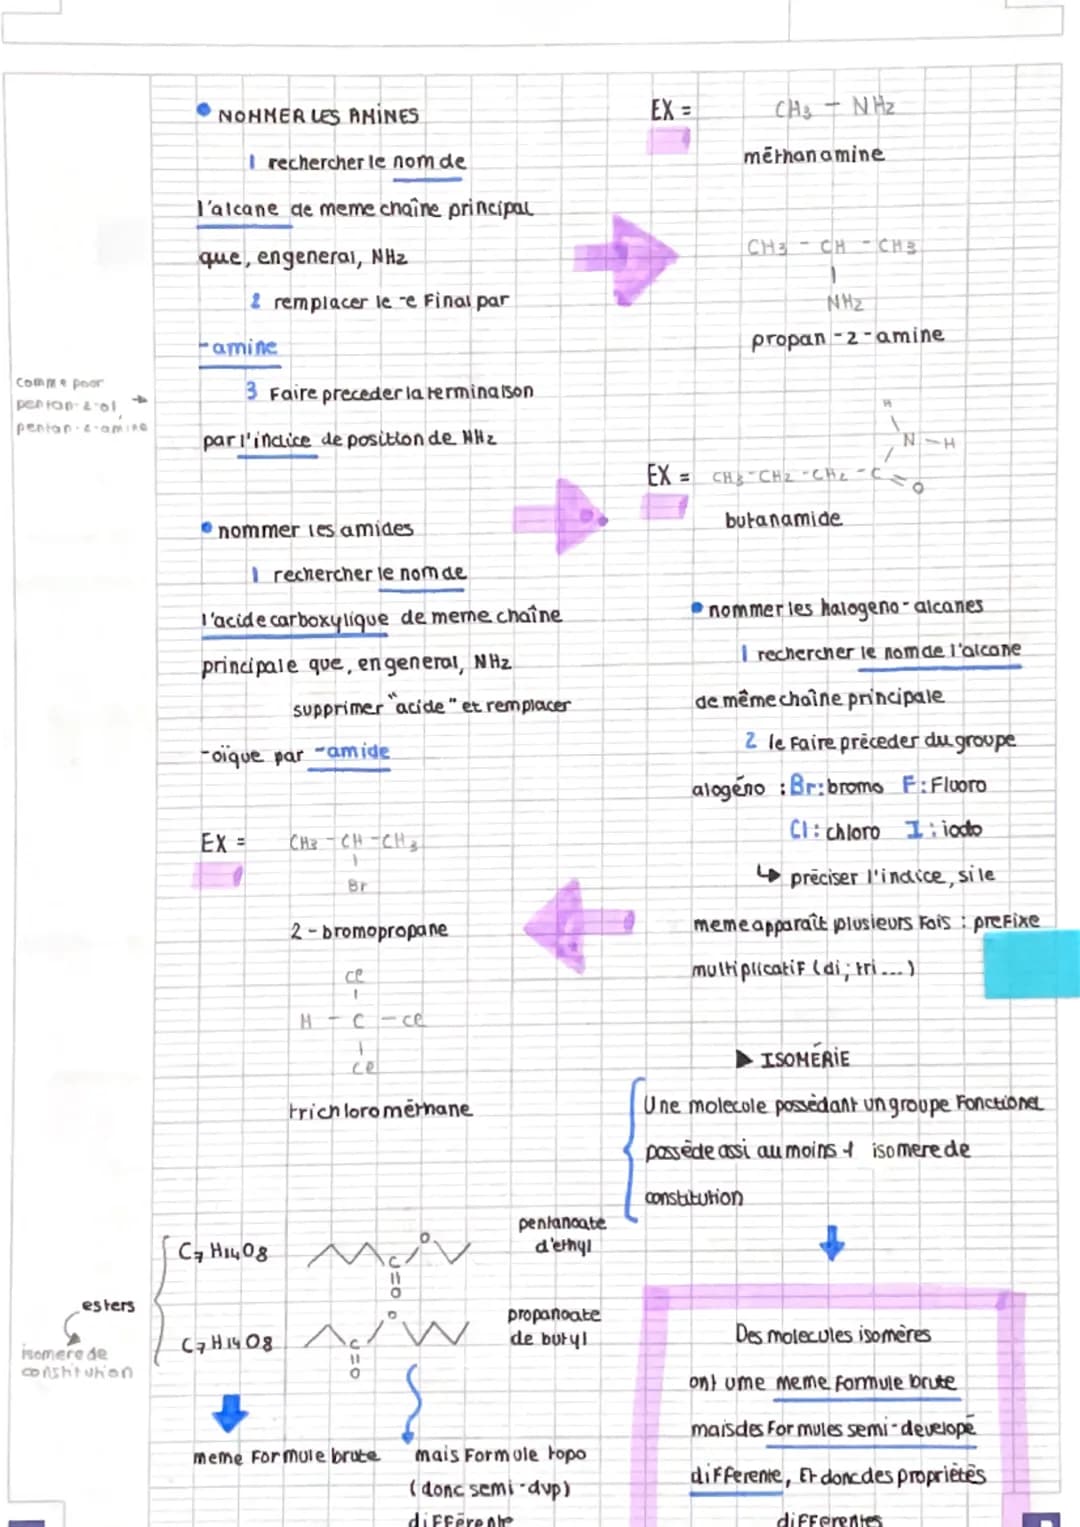 • NOMMER LES AMINES
1 rechercher le nom de
l'alcane de meme chaîne principal
que, en general, NH2
2 remplacer le -e Final par
-amine
3 Faire preceder la terminaison
par l'indice de position de NH2
comme pour
pentan-2-ol,
pentan-2-amine
EX =
CH3 - NH2
méthanamine
CH3 - CH - CH3
NH2
propan-2-amine
• nommer les amides
1 rechercher le nom de
l'acide carboxylique de meme chaîne
principale que, en general, NH2
supprimer "acide" et remplacer
-oïque par -amide
H
N - H
EX = CH3 - CH2 - CH2 - C = O
butanamide
• nommer les halogeno-alcanes
1 rechercher le nom de l'alcane
de même chaîne principale
2 le Faire préceder du groupe
alogéno : Br: bromo F: Fluoro
Cl: chloro I: iodo
↳ préciser l'indice, si le
meme apparaît plusieurs Fois : preFixe
multiplicatiF (di; tri...)
EX =
CH3 - CH - CH3
Br
2-bromopropane
Cl
H - C - Cl
Cl
trichlorométhane
▶ ISOMÉRIE
Une molecule possédant un groupe Fonctionel
possède assi au moins 1 isomere de
constitution
esters
isomere de
constitution
C7 H14 O8
O
C
O
pentanoate
d'ethyl
C7 H14 O8
O
C
O
propanoate
de butyl
meme Formule brute
mais Formule topo
(donc semi-dvp)
diFFérente
Des molecules isomères
ont ume meme Formule brute
mais des Formules semi-developé
diFFerente, Et donc des propriétés
diFFerentes